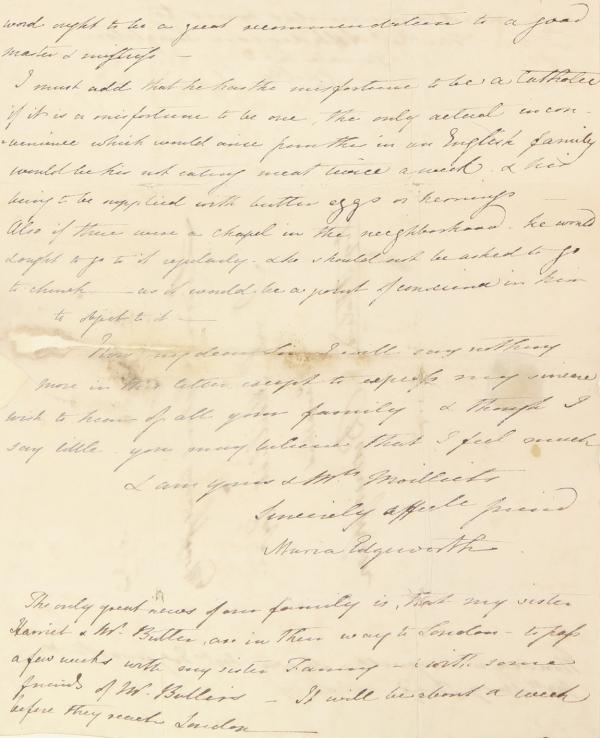 word ought to be a great recommendation to a good
master & mistress —
I must add that he has the misfortune to be a Catholic
if it is a misfortune to be one, the only actual incon-
-venience which would arise from this in an English family
would be his not eating meat twice a week & his
being to be supplied with butter eggs or herrings —
Also if there were a chapel in the neighborhood he would
& ought to go to it regularly. & he should not be asked to go
to church — as it would be a point of conscience in him
to object to it —
Now my dear Sir I will say nothing
more in this letter except to express my sincere
wish to hear of all your family & though I
say little you may believe that I feel much
I am yours & Mrs Moilliets
Sincerely affecte friend
Maria Edgeworth
The only great news of our family is, that my sister
Harriet & Mr. Butler are in their way to London — to pass
a few weeks with my sister Fanny — & with some
friends of Mr. Butlers — It will be about a week
before they reach London —